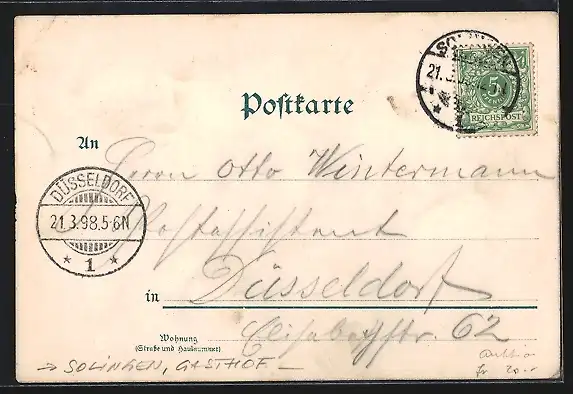 SOLINGEN
21.3.
1
5
REICHSPOST
Postkarte
An Herrn Otto Wintermann
DÜSSELDORF
21.3.98.5-6N
* 1 *
Postassistent
in Düsseldorf
Wohnung
(Straße und Hausnummer)
Elisabethstr. 62
→ SOLINGEN, GASTHOF –